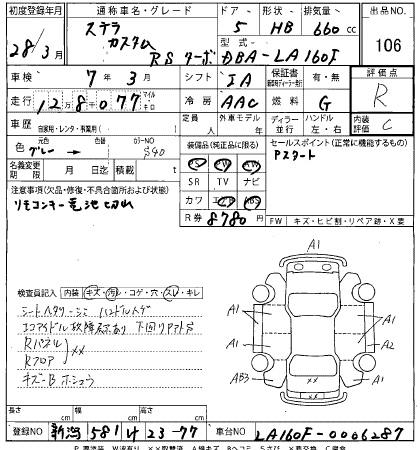 初度登録年月 通称車名・グレード ドア 形状 排気量 出品NO.
28/3月 ステラ カスタム RSターボ 5 HB 660cc 106
型式 DBA-LA160F
車検 7年3月 シフト IA 保証書 有・無 評価点 R
走行 128,077 マイル キロ 冷房 AAC 燃料 G
車歴 自家用・レンタ・事業用( ) 定員 人 外車モデル 年 ディーラー 並行 ハンドル 左・右 内装評価 C
色 グレー 元色 色替 カラーNO S40
装備品(純正品に限る) セールスポイント(正常に機能するもの)
PS PW AW Pスタート
名義変更期限 月 日迄 積載量 t
SR TV ナビ
注意事項(欠品・修復・不具合箇所および状態)
カワ エアB ABS
リモコンキー電池切れ
R券 8780円
FW キズ・ヒビ割・リペア跡・X要
検査員記入 内装 キズ・汚レ・コゲ・穴・スレ・キレ
シートヘタリ・シミ ハンドルスレ
エコアイドル故障表示あり 下回りサビ
Rパネル
Rフロア ××
キズ・B・ホシュウ
A1
A1 A1
A1 A2
AB3 ×× A1
長さ cm 幅 cm 高さ cm
登録NO 新潟 581 け 23-77 車台NO LA160F-0006287